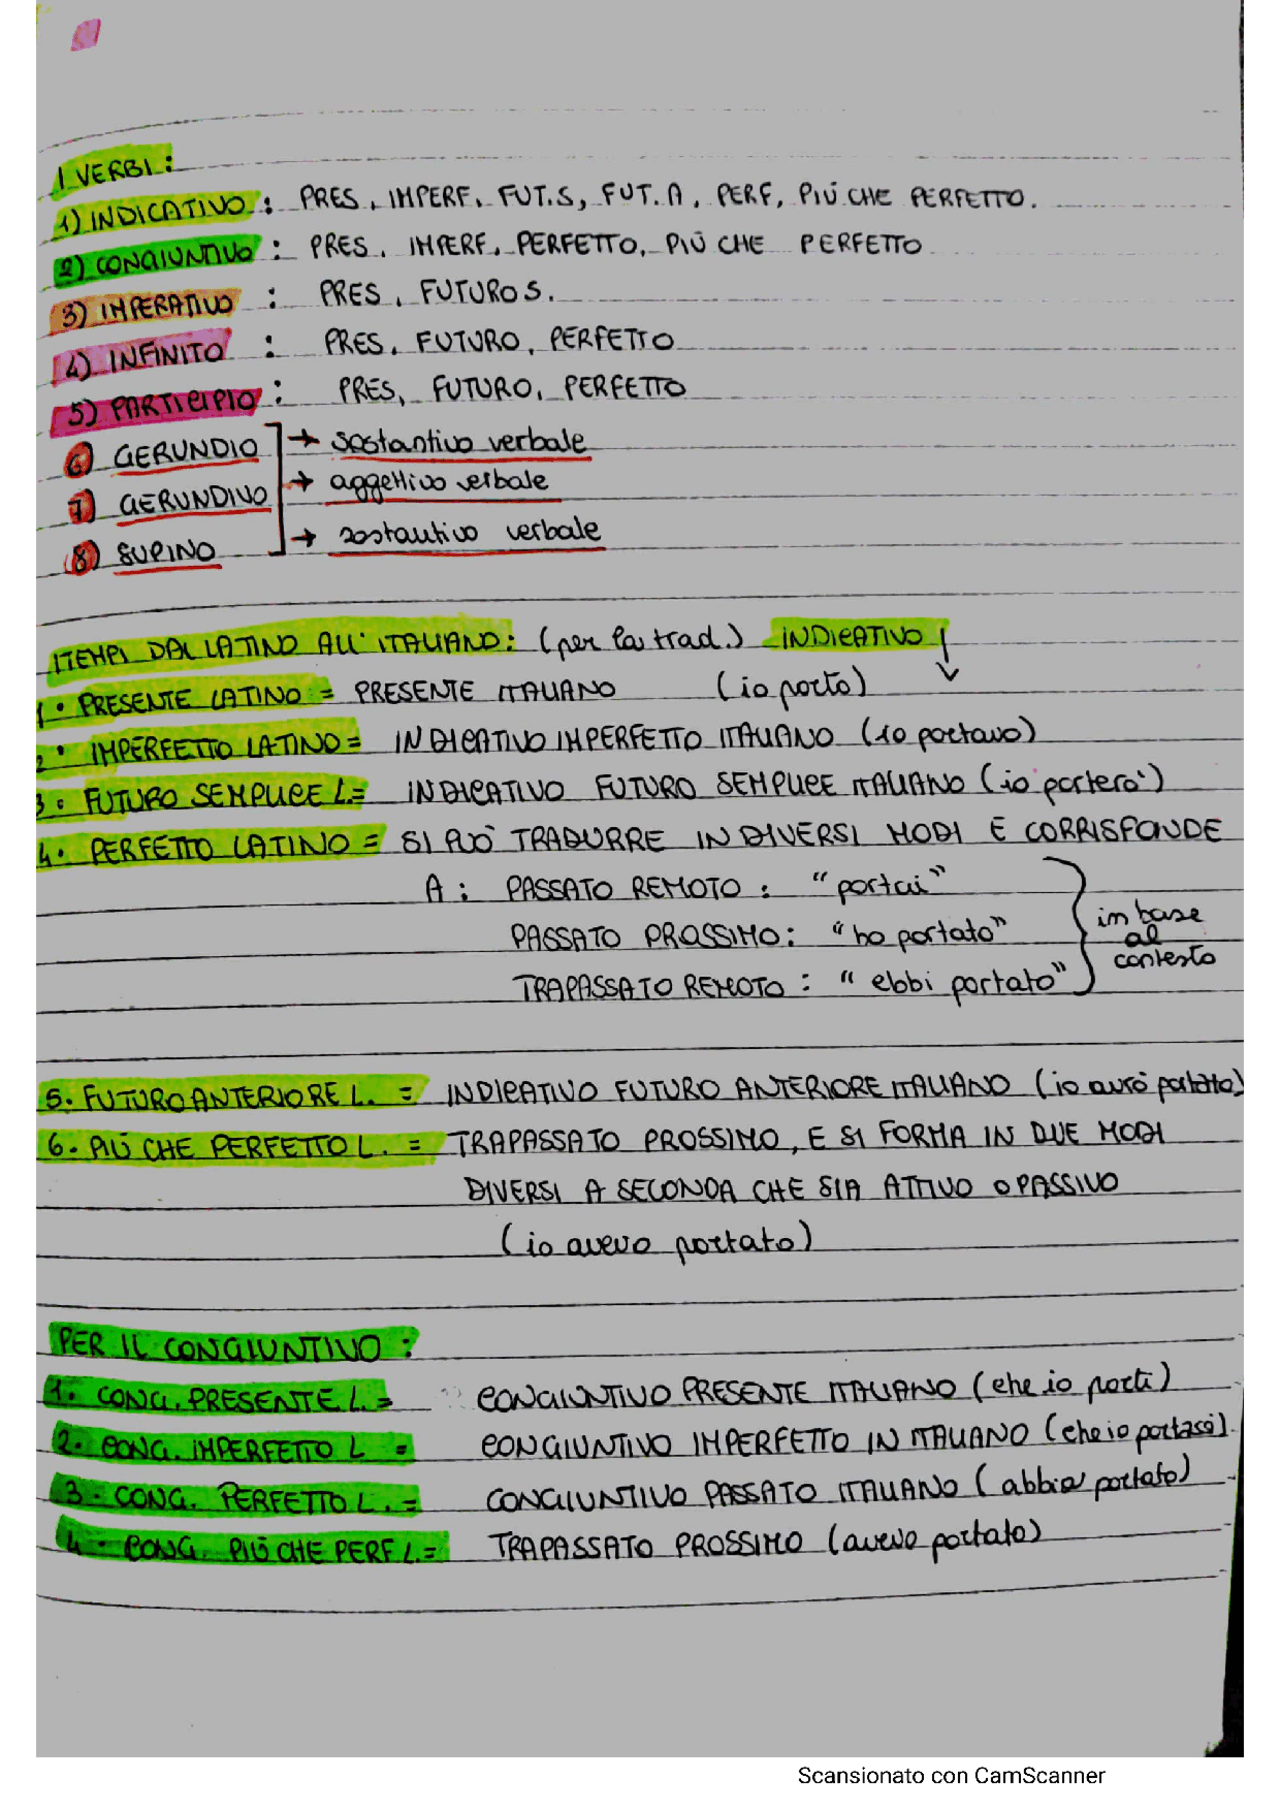 I VERBI:
1) INDICATIVO: PRES, IMPERF, FUT.S, FUT.A, PERF, PIÙ CHE PERFETTO.
2) CONGIUNTIVO: PRES, IMPERF, PERFETTO, PIÙ CHE PERFETTO
3) IMPERATIVO: PRES, FUTURO S.
4) INFINITO: PRES, FUTURO, PERFETTO
5) PARTICIPIO: PRES, FUTURO, PERFETTO
6) GERUNDIO → sostantivo verbale
7) GERUNDIVO → aggettivo verbale
8) SUPINO → sostantivo verbale
I TEMPI DAL LATINO ALL'ITALIANO: (per la trad.) INDICATIVO ↓
1• PRESENTE LATINO = PRESENTE ITALIANO (io porto)
2• IMPERFETTO LATINO = INDICATIVO IMPERFETTO ITALIANO (io portavo)
3• FUTURO SEMPLICE L. = INDICATIVO FUTURO SEMPLICE ITALIANO (io porterò)
4• PERFETTO LATINO = SI PUÒ TRADURRE IN DIVERSI MODI E CORRISPONDE
A: PASSATO REMOTO: "portai"
PASSATO PROSSIMO: "ho portato"
TRAPASSATO REMOTO: "ebbi portato"
in base
al
contesto
5• FUTURO ANTERIORE L. = INDICATIVO FUTURO ANTERIORE ITALIANO (io avrò portato)
6• PIÙ CHE PERFETTO L. = TRAPASSATO PROSSIMO, E SI FORMA IN DUE MODI
DIVERSI A SECONDA CHE SIA ATTIVO O PASSIVO
(io avevo portato)
PER IL CONGIUNTIVO:
1• CONG. PRESENTE L. = CONGIUNTIVO PRESENTE ITALIANO (che io porti)
2• CONG. IMPERFETTO L = CONGIUNTIVO IMPERFETTO IN ITALIANO (che io portassi).
3• CONG. PERFETTO L. = CONGIUNTIVO PASSATO ITALIANO (abbia portato)
4• CONG. PIÙ CHE PERF L. = TRAPASSATO PROSSIMO (avevo portato)
Scansionato con CamScanner